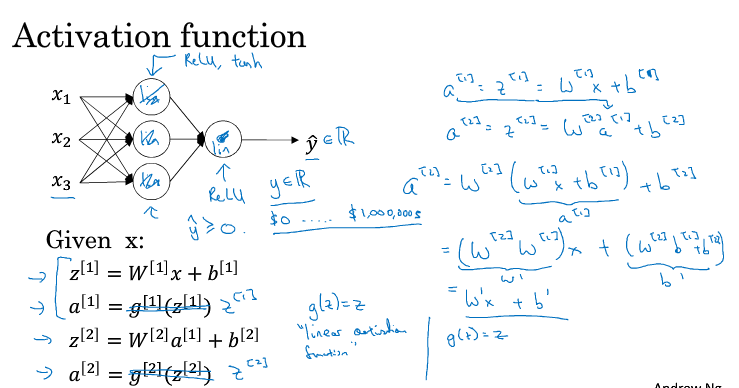 Activation function
ReLU, tanh
x₁
x₂
x₃
lin
ŷ ∈ ℝ
ReLU
ŷ ≥ 0.
y ∈ ℝ
$0 ..... $1,000,000
Given x:
z[1] = W[1]x + b[1]
a[1] = g[1](z[1]) z[1]
z[2] = W[2]a[1] + b[2]
a[2] = g[2](z[2]) z[2]
g(z) = z
"linear activation
function"
a[1] = z[1] = W[1]x + b[1]
a[2] = z[2] = W[2]a[1] + b[2]
a[2] = W[2](W[1]x + b[1]) + b[2]
a[1]
= (W[2]W[1])x + (W[2]b[1] + b[2])
W' b'
= W'x + b'
g(z) = z
Andrew Ng